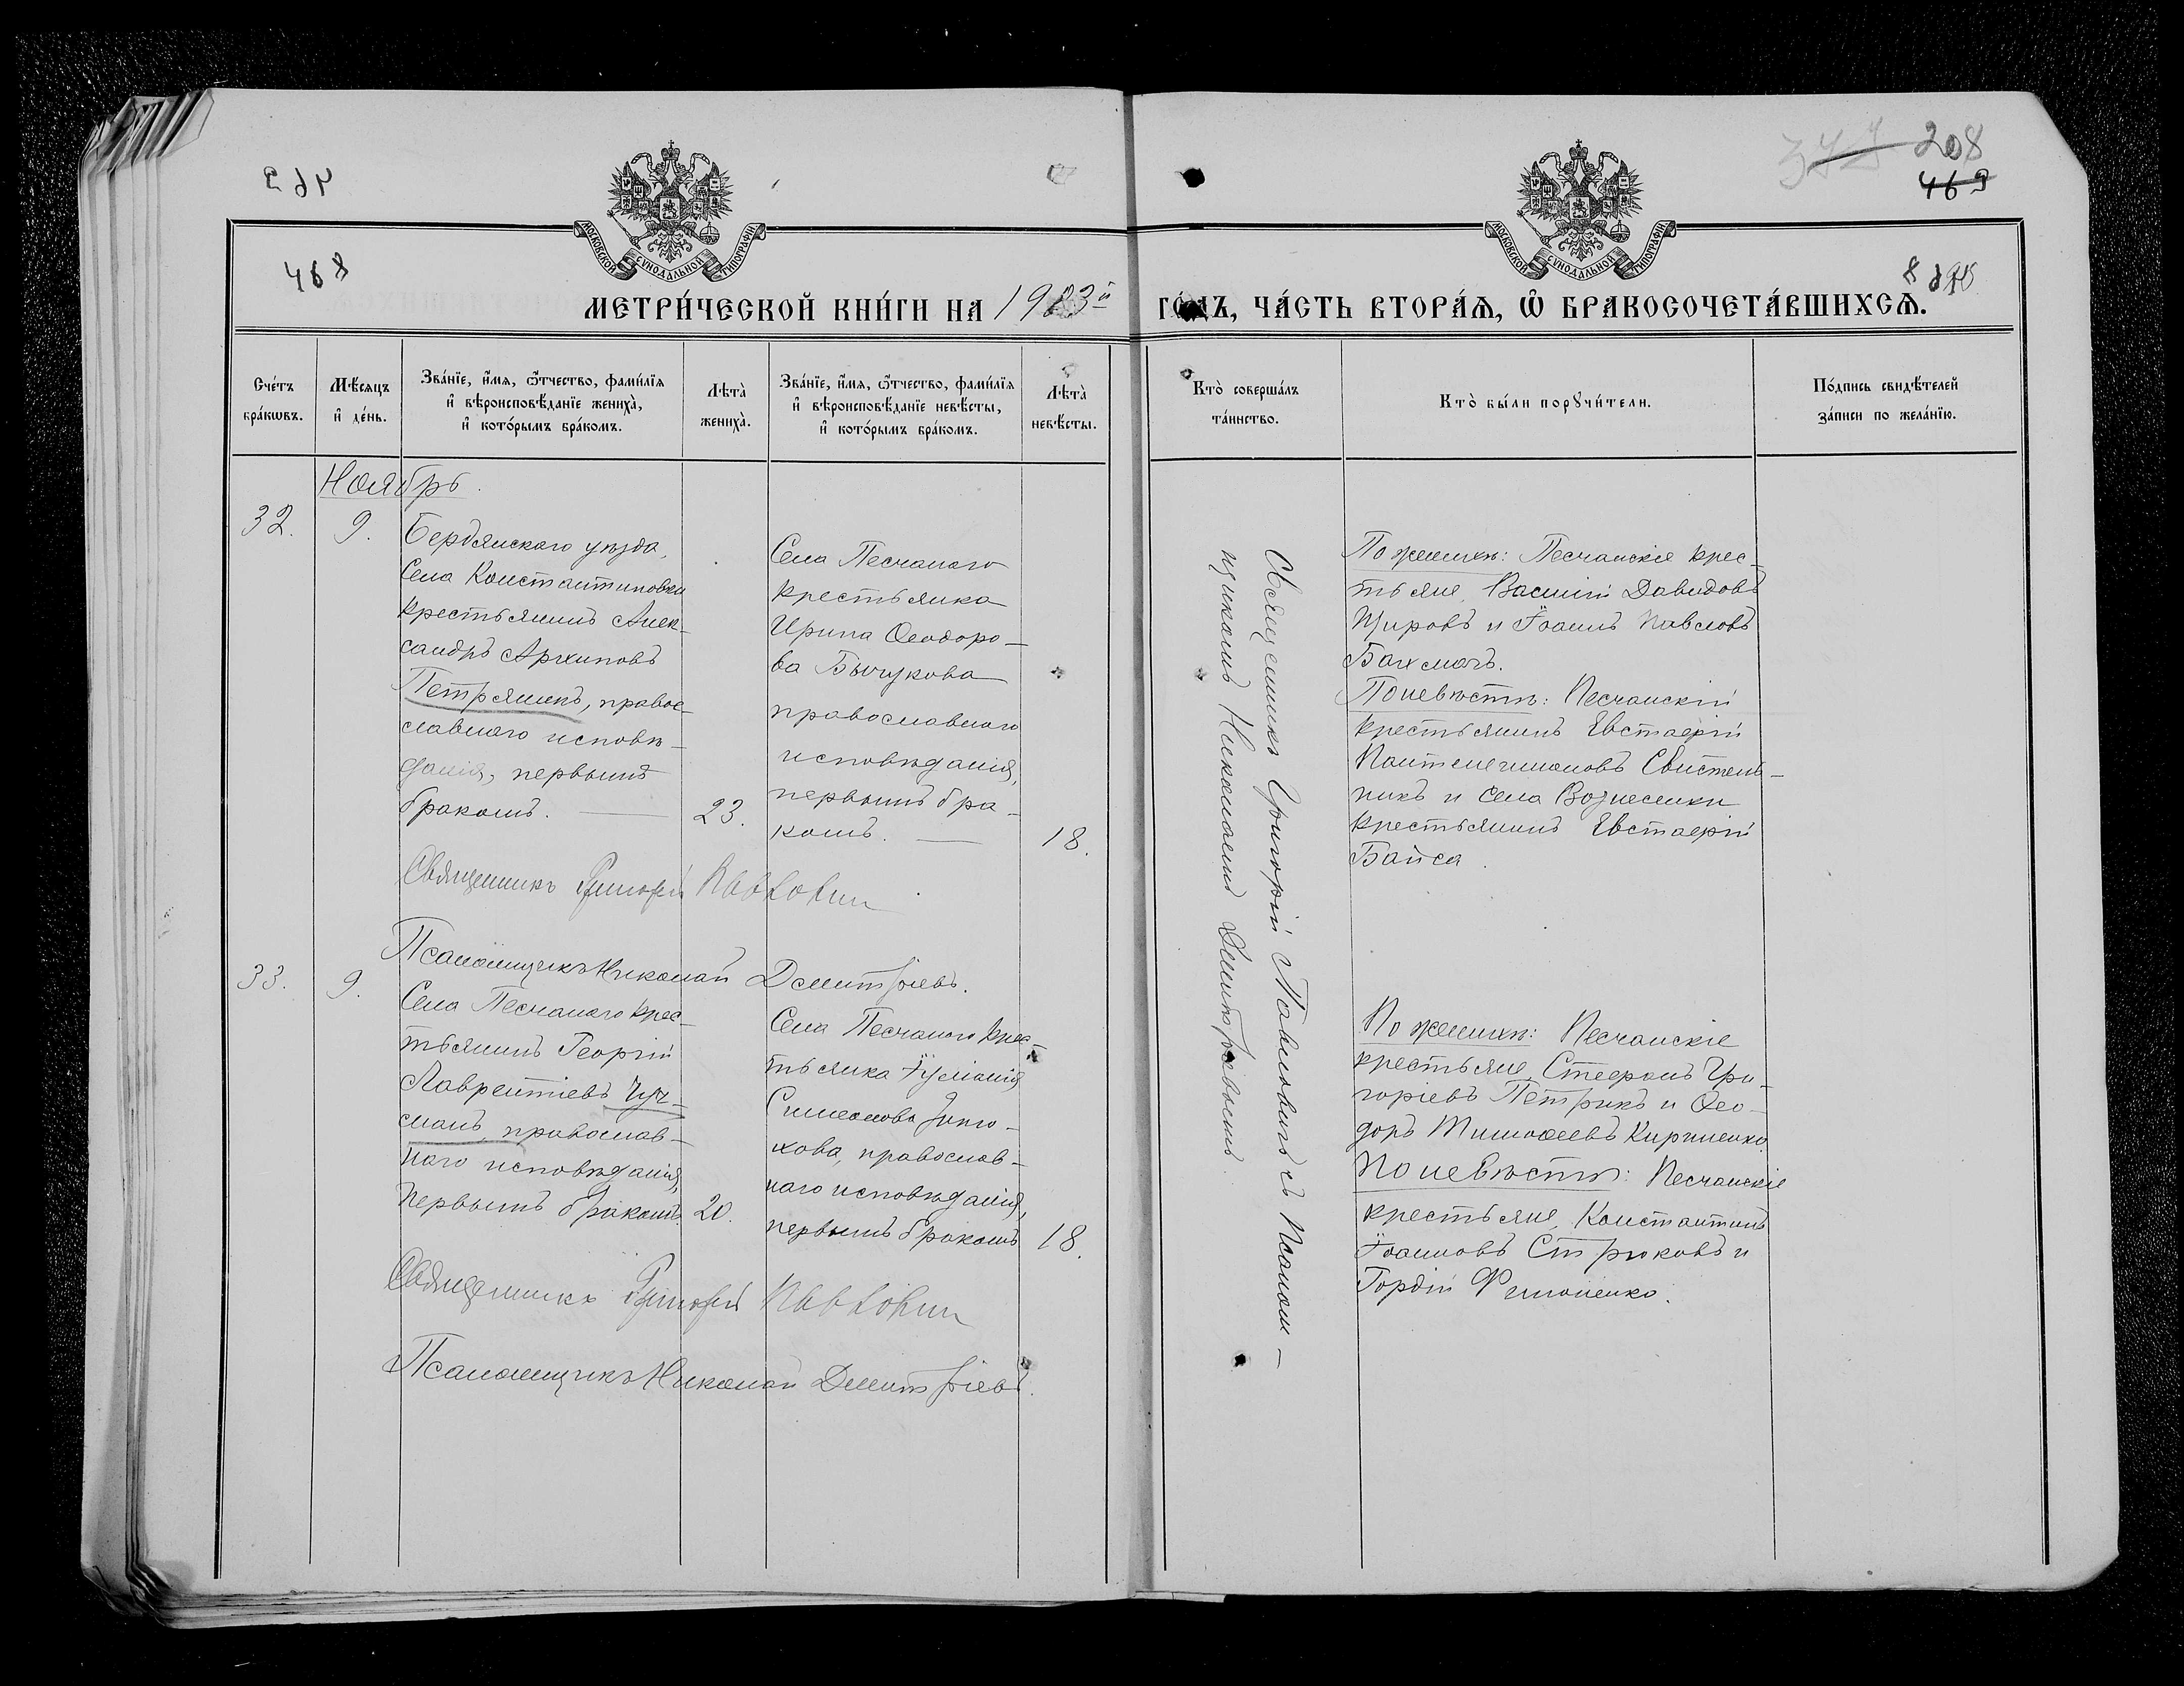 208
469
468
МОСКОВСКОЙ СѴНОДАЛЬНОЙ ТИПОГРАФІИ
МОСКОВСКОЙ СѴНОДАЛЬНОЙ ТИПОГРАФІИ
МЕТРИ́ЧЕСКОЙ КНИ́ГИ НА
ГО́ДЪ, ЧА́СТЬ ВТОРА́Ѧ, Ѡ҆ БРАКОСОЧЕТА́ВШИХСѦ.
Сче́тъ
бра́кѡвъ.
Мѣ́сѧцъ
и҆ де́нь.
Зва́нїе, и҆́мѧ, ѻ҆́тчество, фами́лїѧ
и҆ вѣроисповѣ́данїе жениха̀,
и҆ кото́рымъ бра́комъ.
Лѣта̀
жениха̀.
Зва́нїе, и҆́мѧ, ѻ҆́тчество, фами́лїѧ
и҆ вѣроисповѣ́данїе невѣ́сты,
и҆ кото́рымъ бра́комъ.
Лѣта̀
невѣ́сты.
Кто̀ соверша́лъ
та́инство.
Кто̀ бы́ли порꙋчи́тели.
По́дпись свидѣ́телей
за́писи по жела́нїю.
Ноябрь.
32.
9.
Бердянскаго уѣзда,
Села Константиновки
крестьянинъ Алек-
сандръ Архиповъ
Петряникъ, право-
славнаго исповѣ-
данія, первымъ
бракомъ.
23.
Села Песчанаго
крестьянка
Ирина Ѳеодоро-
ва Бычукова
православнаго
исповѣданія,
первымъ бра-
комъ.
18.
Священникъ Григорій Павловичъ съ Псалом-
щикомъ Николаемъ Дмитріевымъ.
По женихѣ: Песчанскіе крес-
тьяне, Василій Давидовъ
Щировъ и Іоаннъ Павловъ
Бахмачъ.
По невѣстѣ: Песчанскій
крестьянинъ Евстафій
Пантелеимоновъ Свистель-
никъ и села Вознесенки
крестьянинъ Евстафій
Байса.
Священникъ Григорій Павловичъ
Псаломщикъ Николай Дмитріевъ.
33.
9.
Села Песчанаго крес-
тьянинъ Георгій
Лаврентіевъ Чуч-
манъ, православ-
наго исповѣданія,
первымъ бракомъ.
20.
Села Песчанаго крес-
тьянка Іуліанія
Симеонова
православ-
наго исповѣданія,
первымъ бракомъ
18.
По женихѣ: Песчанскіе
крестьяне, Стефанъ Гри-
горіевъ Петрикъ и Ѳео-
доръ Тимоѳеевъ Кириленко.
По невѣстѣ: Песчанскіе
крестьяне, Константинъ
Іоанновъ Стрюковъ и
Гордій Филоненко.
Священникъ Григорій Павловичъ
Псаломщикъ Николай Дмитріевъ.